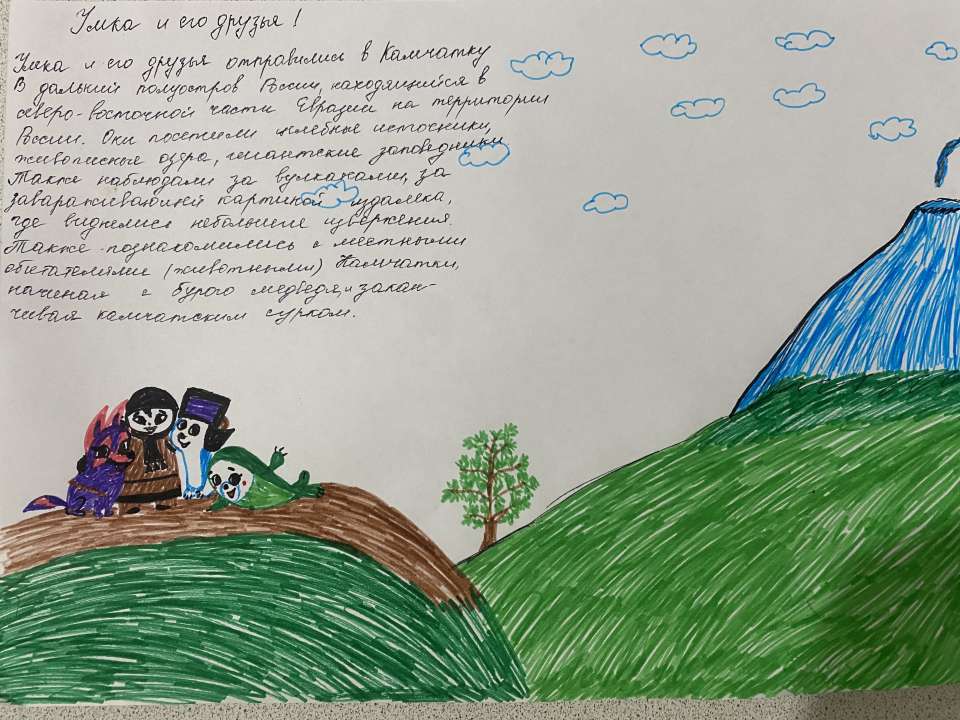 Умка и его друзья!
Умка и его друзья отправились в Камчатку
В дальний полуостров России, находящийся в
северо-восточной части Евразии на территории
России. Они посетили целебные источники,
живописные озёра, гигантские заповедники
Также наблюдали за вулканами, за
завараживающей картиной издалека,
где виднелись небольшие извержения.
Также познакомились с местными
обитателями (животными) Камчатки,
начиная с бурого медведя, и закан-
чивая камчатским сурком.